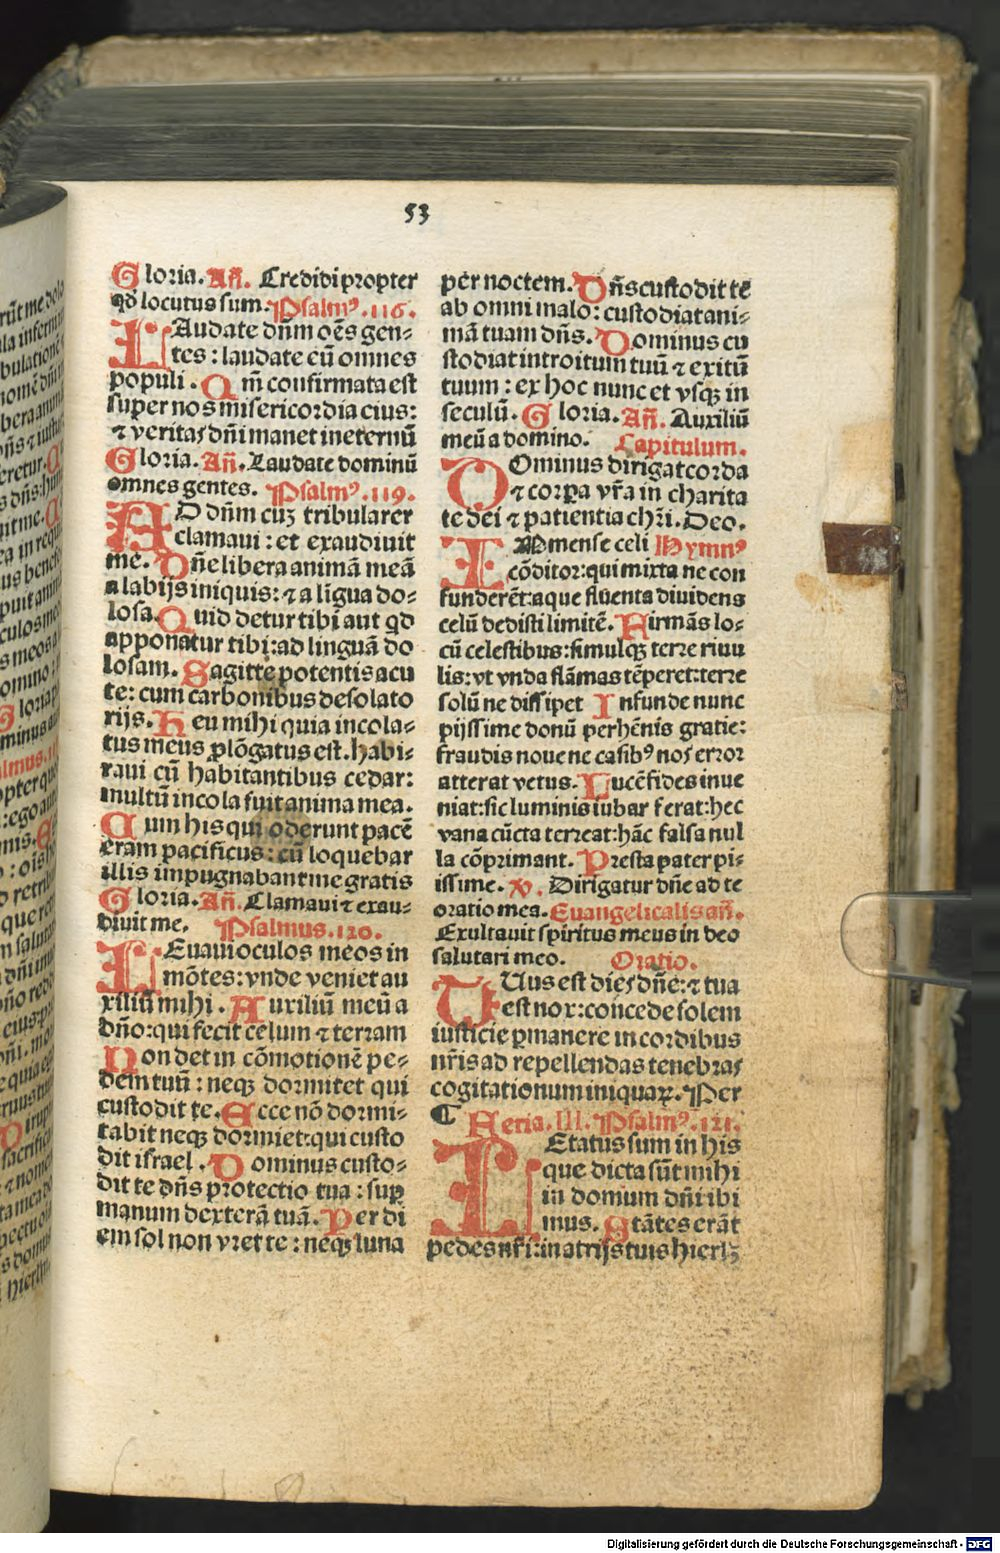 53
Gloria. Añ. Credidi propter
qđ locutus sum. Psalmꝰ .116.
LAudate dñm oēs gen-
tes : laudate eū omnes
populi . Qm̄ confirmata est
super nos misericordia eius:
⁊ veritas dñi manet ineternū
Gloria. Añ. Laudate dominū
omnes gentes. Psalmꝰ .119.
AD dñm cuꝫ tribularer
clamaui : et exaudiuit
me. Dñe libera animā meā
a labijs iniquis: ⁊ a līgua do-
losa. Quid detur tibi aut qđ
apponatur tibi: ad linguā do
losam. Sagitte potentis acu
te: cum carbonibus desolato
rijs. Heu mihi quia incola-
tus meus ꝓlōgatus est. habi-
taui cū habitantibus cedar:
multū incola fuit anima mea.
Cum his qui oderunt pacē
eram pacificus : cū loquebar
illis impugnabant me gratis
Gloria. Añ. Clamaui ⁊ exau-
diuit me. Psalmus .120.
LEuaui oculos meos in
mōtes: vnde veniet au
xiliū mihi . Auxiliū meū a
dño: qui fecit celum ⁊ terram
Non det in cōmotionē pe-
dem tuū : neqꝫ dormitet qui
custodit te. Ecce nō dormi-
tabit neqꝫ dormiet: qui custo
dit israel . Dominus custo-
dit te dñs protectio tua : sup̄
manum dexterā tuā. Per di
em sol non vret te : neqꝫ luna
per noctem. Dñs custodit te
ab omni malo: custodiat ani-
mā tuam dñs. Dominus cu
stodiat introitum tuū ⁊ exitū
tuum : ex hoc nunc et vsqꝫ in
seculū. Gloria. Añ. Auxiliū
meū a domino. Capitulum.
DOminus dirigat corda
⁊ corꝑa vr̄a in charita
te dei ⁊ patientia chr̄i. Deo.
IMmense celi Hymnꝰ
cōditor: qui mixta ne con
funderēt: aque flūenta diuidens
celū dedisti limitē. Firmās lo-
cū celestibus: simulqꝫ terre riuu
lis: vt vnda flāmas tēperet: terre
solū ne dissipet Infunde nunc
pijssime donū perhēnis gratie:
fraudis noue ne casibꝰ nos error
atterat vetus. Lucē fides inue
niat: sic luminis iubar ferat: hec
vana cūcta terreat: hāc falsa nul
la cōprimant. Presta pater pi-
issime. ℣. Dirigatur dñe ad te
oratio mea. Euangelicalis añ.
Exultauit spiritus meus in deo
salutari meo. Oratio.
TUus est dies dñe: ⁊ tua
est nox: concede solem
iusticie ꝑmanere in cordibus
nr̄is ad repellendas tenebras
cogitationum iniquaꝝ. Per
¶ Feria. III. Psalmꝰ .121.
LEtatus sum in his
que dicta sūt mihi
in domum dñi ibi
mus. Stātes erāt
pedes nr̄i: in atrijs tuis hierlꝫ
Digitalisierung gefördert durch die Deutsche Forschungsgemeinschaft - DFG